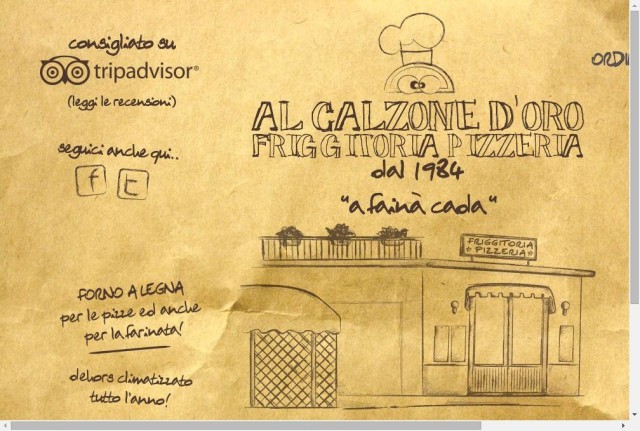 consigliato su
tripadvisor®
(leggi le recensioni)
seguici anche qui..
f t
FORNO A LEGNA
per le pizze ed anche
per la farinata!
dehors climatizzato
tutto l'anno!
AL CALZONE D'ORO
FRIGGITORIA PIZZERIA
dal 1984
"a fainà cada"
FRIGGITORIA
PIZZERIA